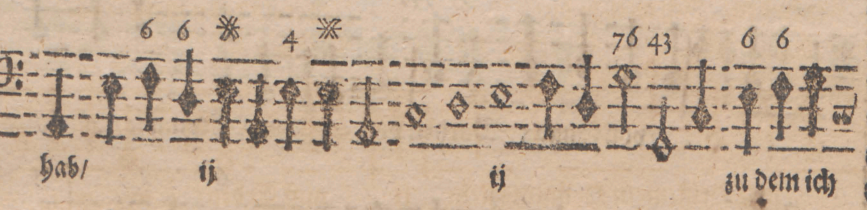 6 6 ※ 4 ※ 76 43 6 6
hab/ ij ij zu dem ich